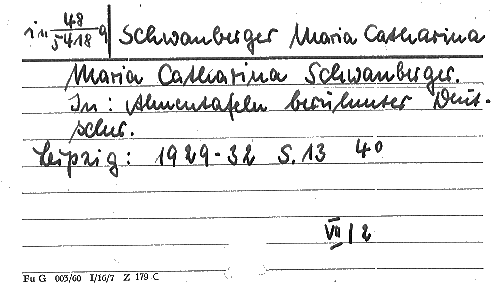 in 48/5418 q Schwanberger Maria Catharina
Maria Catharina Schwanberger.
In: Ahnentafeln berühmter Deut-
scher.
Leipzig: 1929-32 S. 13 4°
VII/2
Fu G 003/60 I/16/7 Z 179 C